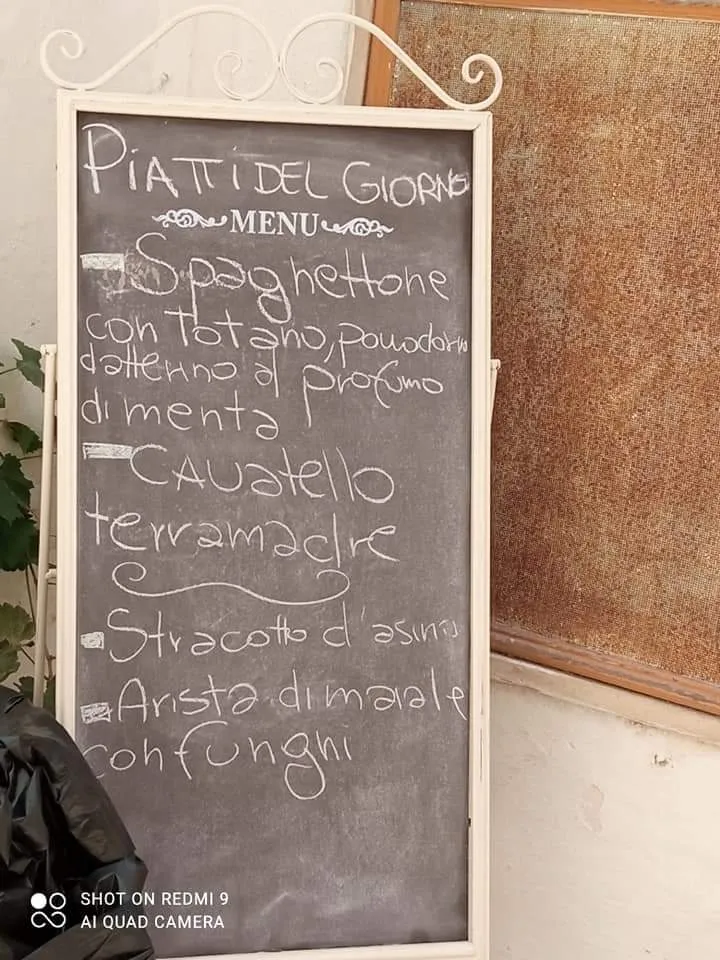 PiATTi DEL GIORNO
MENU
- Spaghettone
con Totano, pomodorino
datterino al profumo
di menta
- CAVatello
terramadre
- Stracotto d'asino
- Arista di maiale
con funghi
SHOT ON REDMI 9
AI QUAD CAMERA